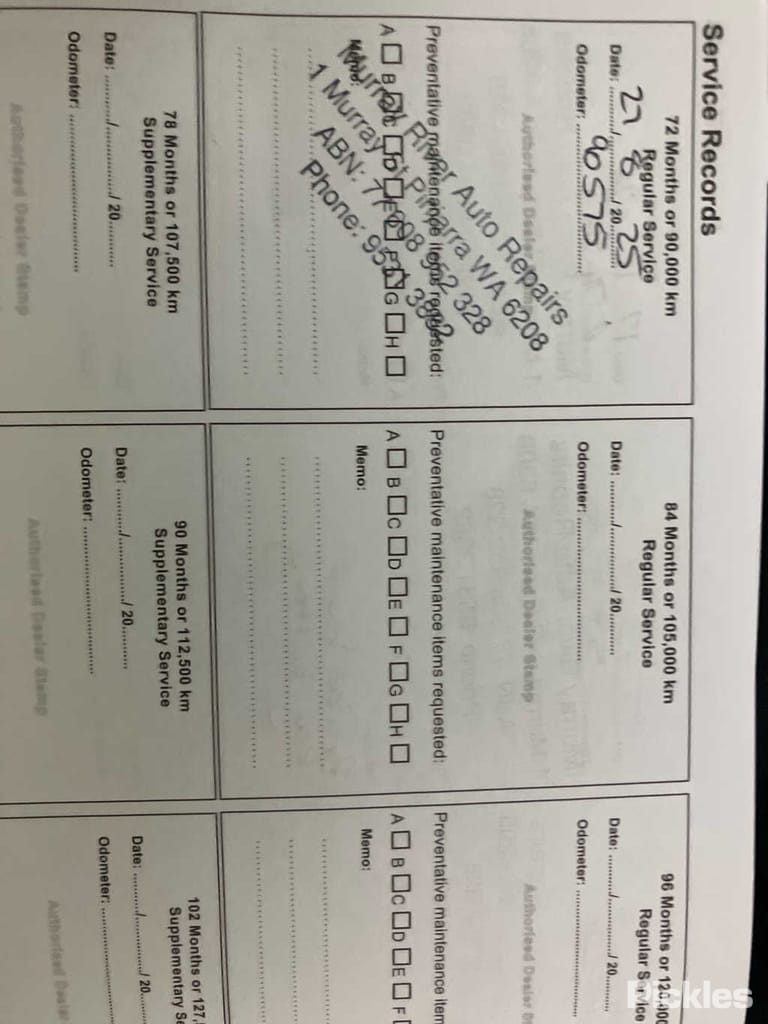 Service Records
72 Months or 90,000 km
Regular Service
Date: 27 / 8 / 20 25
Odometer: 90575
Authorised Dealer Stamp
Murray River Auto Repairs
1 Murray St Pinjarra WA 6208
ABN: 328
Phone:
Preventative maintenance items requested:
A B C D E F G H
Memo:
84 Months or 105,000 km
Regular Service
Date: ........../............../ 20..........
Odometer: ........................................
Authorised Dealer Stamp
Preventative maintenance items requested:
A B C D E F G H
Memo:
96 Months or 120,000
Regular Service
Date: ........../............../ 20..........
Odometer: ........................................
Authorised Dealer
Preventative maintenance item
A B C D E F
Memo:
78 Months or 107,500 km
Supplementary Service
Date: ........../............../ 20..........
Odometer: ........................................
Authorised Dealer Stamp
90 Months or 112,500 km
Supplementary Service
Date: ........../............../ 20..........
Odometer: ........................................
Authorised Dealer Stamp
102 Months or 127,
Supplementary Se
Date: ........../............../ 20..........
Odometer: ........................................
Authorised Dealer
Pickles